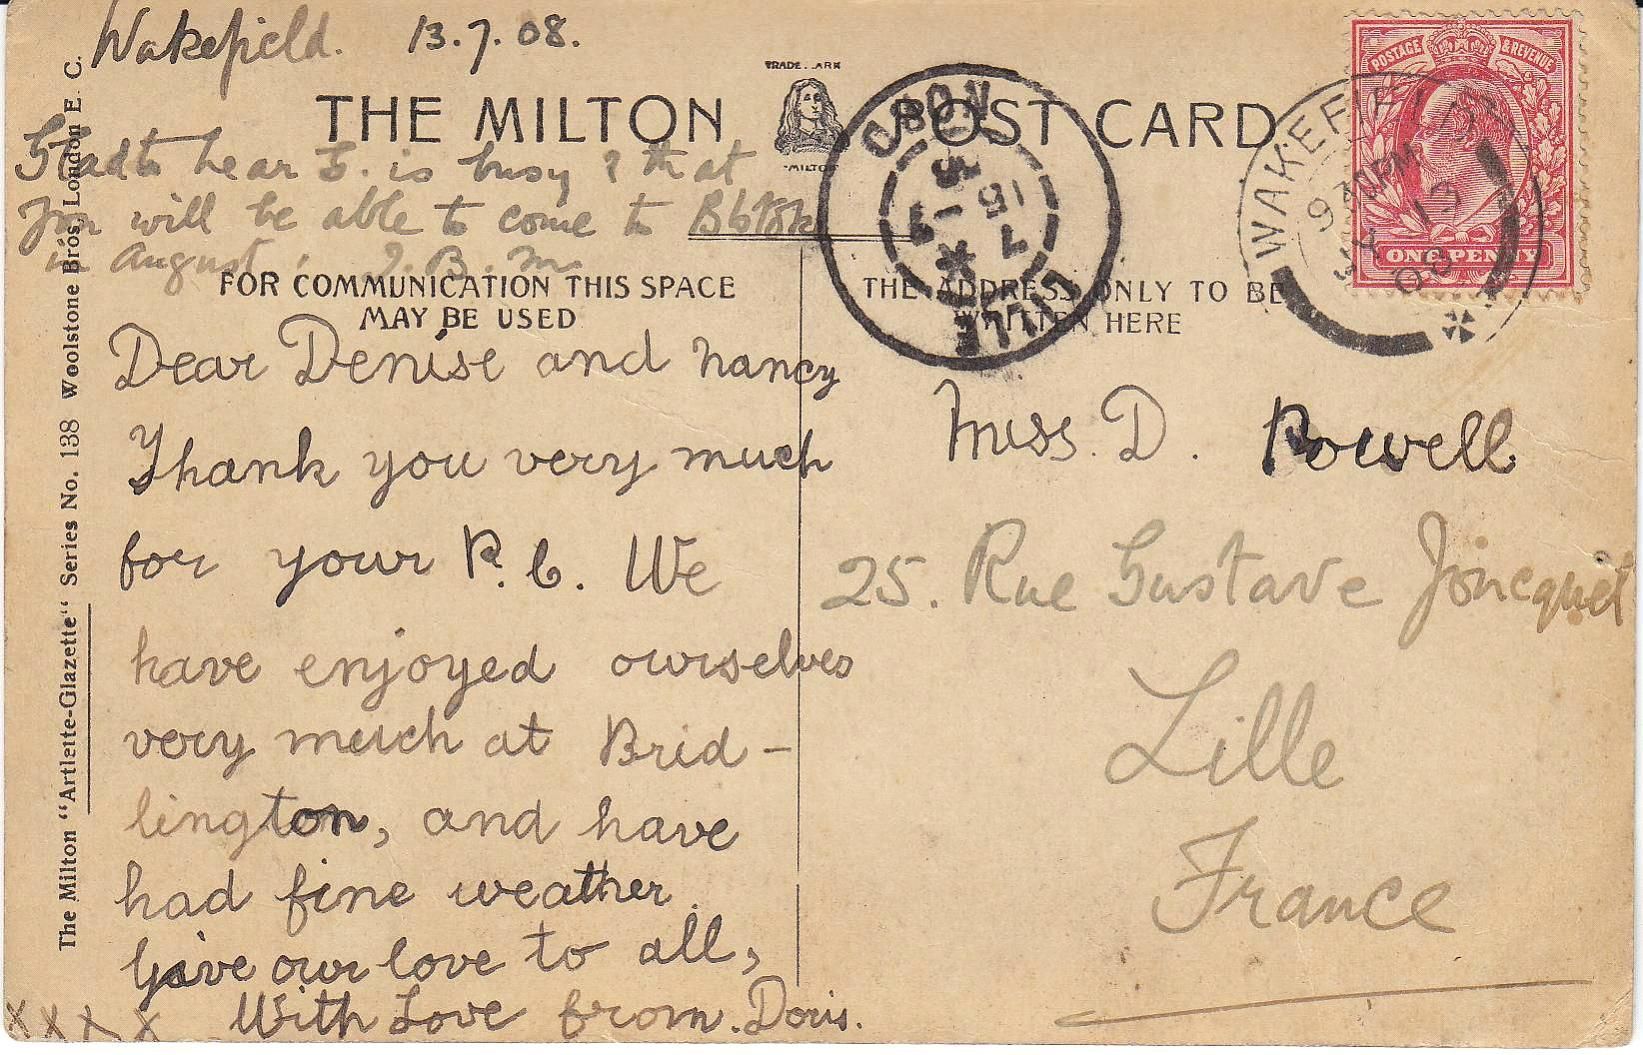 Wakefield. 13.7.08.
THE MILTON POST CARD
TRADE MARK
"MILTON"
Glad to hear F. is busy & that
you will be able to come to
in August. J. B. M.
FOR COMMUNICATION THIS SPACE
MAY BE USED
Dear Denise and Nancy
Thank you very much
for your P.C. We
have enjoyed ourselves
very much at Brid-
lington, and have
had fine weather.
Give our love to all,
With Love from Doris.
x x x x
The Milton "Artlette-Glazette" Series No. 138 Woolstone Bros, London E. C.
THE ADDRESS ONLY TO BE
WRITTEN HERE
Miss. D. Powell
25. Rue Gustave Joncquet
Lille
France
POSTAGE & REVENUE
ONE PENNY
WAKEFIELD
9 30 PM
JY 13
08
LILLE
NORD
15 7